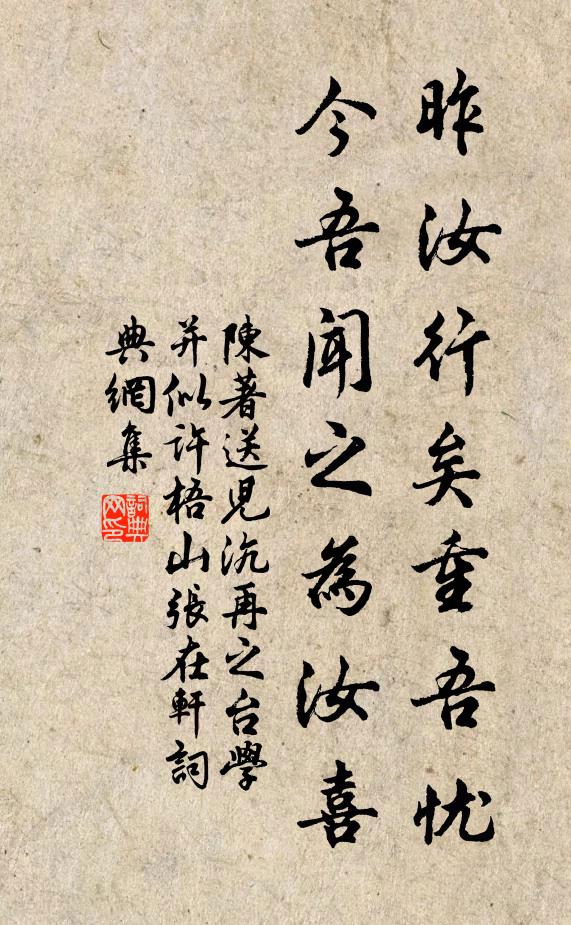 昨汝行矣重吾忧
今吾闻之為汝喜
陳著送児沆再之台學
并似許梧山張在軒詞
典網集
詞典
网印